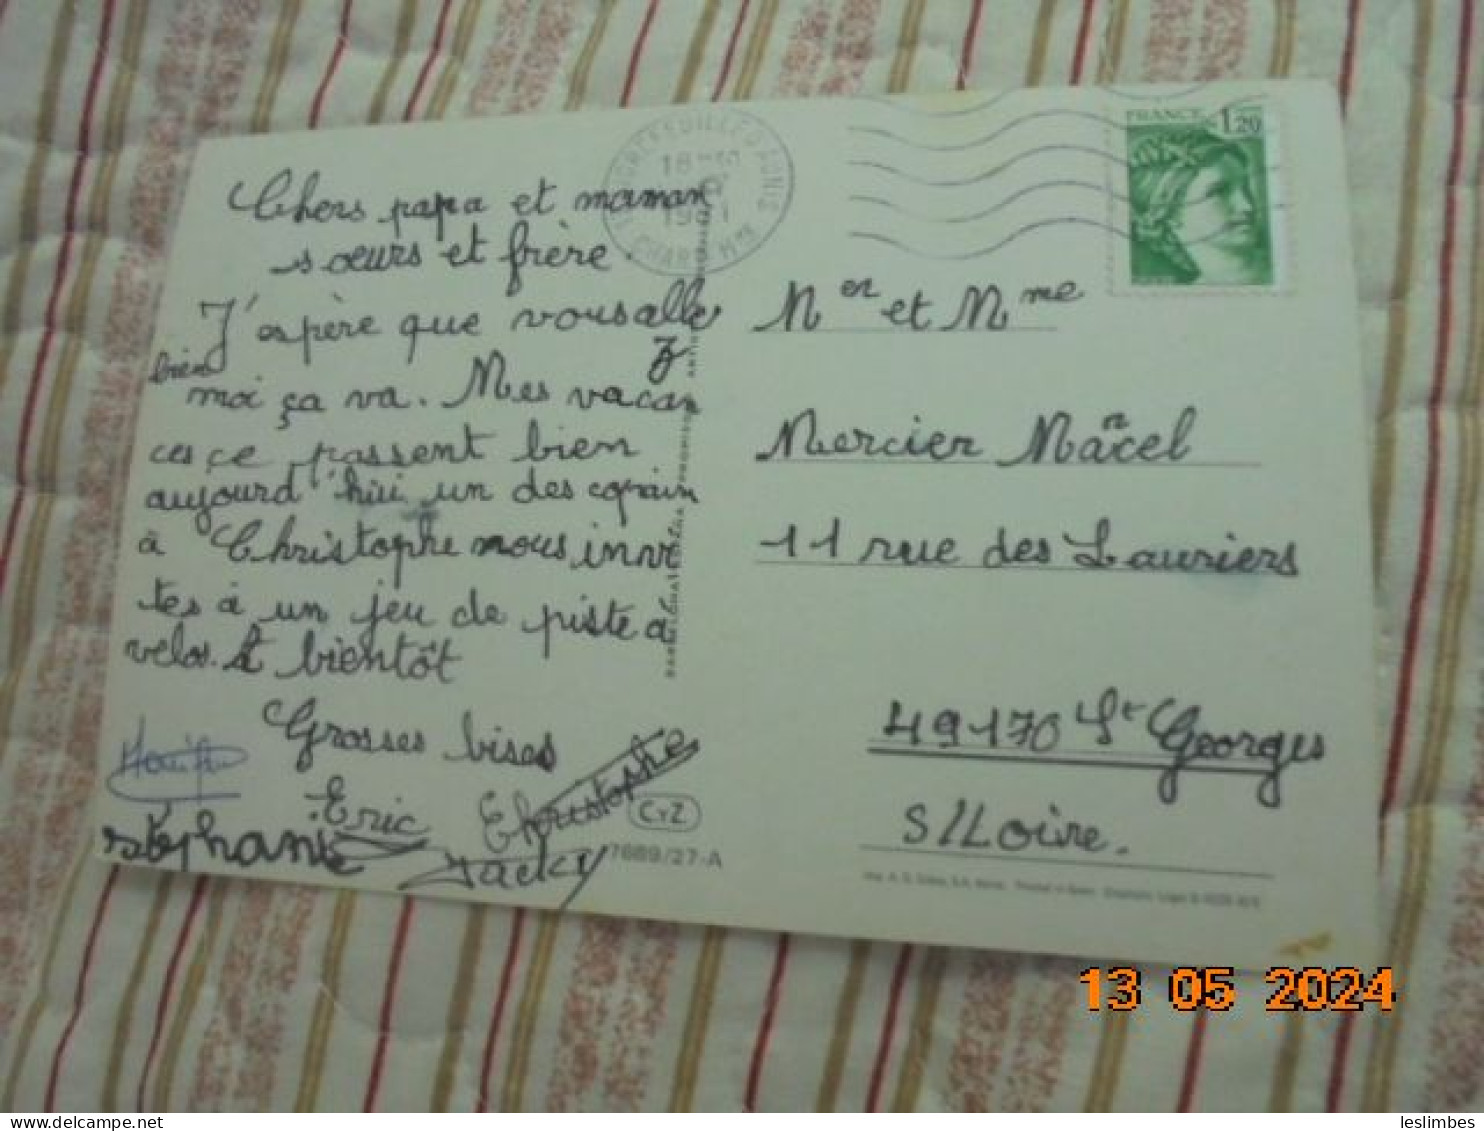 Chers papa et maman
soeurs et frère.
J'espère que vous alle
z
bien
moi ça va. Mes vacan
ces çe passent bien
aujourd'hui un des copain
à Christophe nous invi
tes à un jeu de piste à
velos. A bientôt
Grosses bises
Eric Christophe
stéphanie Jacky
CYZ
7689/27-A
18
CHARTE Mme
FRANCE 1,20
Mer et Mme
Mercier Marcel
11 rue des Lauriers
49170 St Georges
S/Loire.
13 05 2024
leslimbes